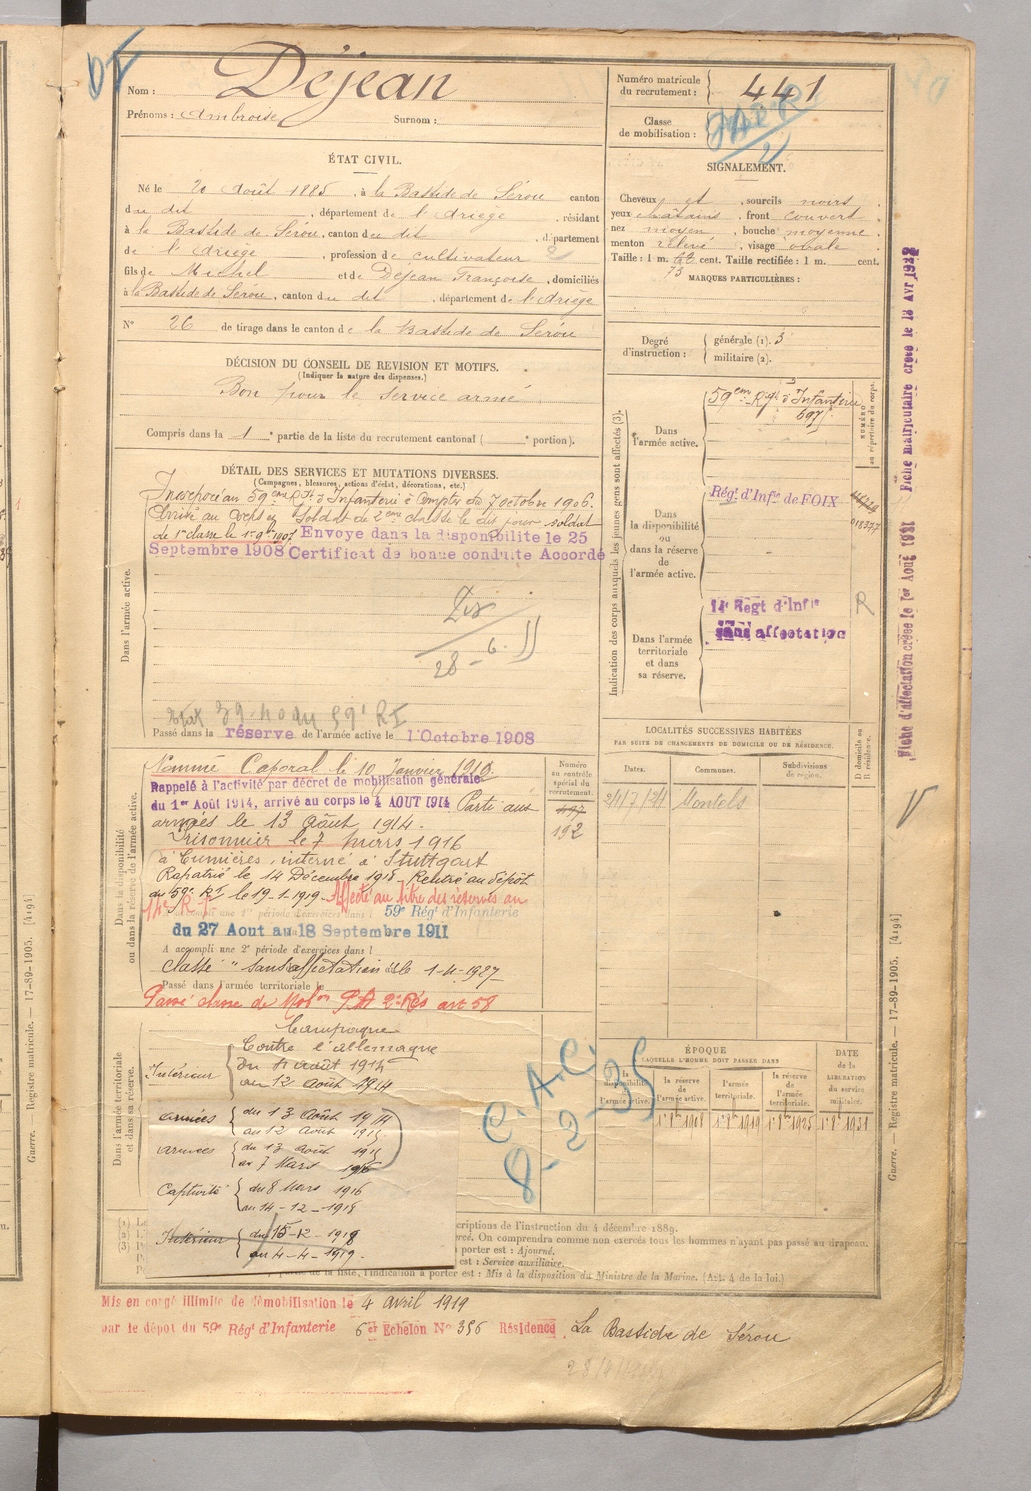 Nom : Déjean
Prénoms : Ambroise Surnom :
Numéro matricule du recrutement : 441
Classe de mobilisation :
ÉTAT CIVIL.
Né le 20 Août 1885, à la Bastide de Sérou canton
du dit, département de l'Ariège, résidant
à la Bastide de Sérou, canton du dit, département
de l'Ariège, profession de cultivateur
fils de Michel et de Dejean Françoise, domiciliés
à la Bastide de Sérou, canton du dit, département de l'Ariège
N° 26 de tirage dans le canton de la Bastide de Sérou
SIGNALEMENT.
Cheveux et, sourcils noirs.
yeux châtains, front couvert
nez moyen, bouche moyenne
menton relevé, visage ovale
Taille : 1 m. cent. Taille rectifiée : 1 m. cent.
73
MARQUES PARTICULIÈRES :
Degré d'instruction : générale (1). 3
militaire (2).
DÉCISION DU CONSEIL DE REVISION ET MOTIFS.
(Indiquer la nature des dispenses.)
Bon pour le service armé
Compris dans la 1e partie de la liste du recrutement cantonal ( e portion).
DÉTAIL DES SERVICES ET MUTATIONS DIVERSES.
(Campagnes, blessures, actions d'éclat, décorations, etc.)
Dans l'armée active.
Incorporé au 59eme Rgt d'Infanterie à compter du 7 octobre 1906.
Arrivé au corps et Soldat de 2eme classe le dit jour soldat
de 1e classe le 1er 9bre 1907 Envoye dans la disponibilite le 25
Septembre 1908 Certificat de bonne conduite Accordé
28-6.
Passé dans la réserve de l'armée active le 1 Octobre 1908
Indication des corps auxquels les jeunes gens sont affectés (3).
Dans l'armée active.
59em Rgt d'Infanterie
697
NUMÉRO au répertoire du corps.
Dans la disponibilité ou dans la réserve de l'armée active.
Régt d'Infie de FOIX
018377
Dans l'armée territoriale et dans sa réserve.
14e Regt d'Infie
sans affectation
R
Fiche matriculaire créée le
Fiche d'affectation créée le 1er Août 1931
Dans la disponibilité ou dans la réserve de l'armée active.
Nommé Caporal le 10 Janvier 1910.
Rappelé à l'activité par décret de mobilisation générale
du 1er Août 1914, arrivé au corps le 4 AOUT 1914 Parti aux
armées le 13 août 1914.
Prisonnier le 7 mars 1916
à Cumières, interné à Stuttgart
Rapatrié le 14 Décembre 1918 - Rentré au dépôt
du 59e RI le 19-1-1919. Affecté au titre des réserves au
14e R I
A accompli une 1re période d'exercices dans l 59e Régt d'Infanterie
du 27 Aout au 18 Septembre 1911
A accompli une 2e période d'exercices dans l
Classé " sans affectation " le 1-4-1927
Passé dans l'armée territoriale le
Numéro au contrôle spécial du recrutement.
192
LOCALITÉS SUCCESSIVES HABITÉES
PAR SUITE DE CHANGEMENTS DE DOMICILE OU DE RÉSIDENCE.
Dates. Communes. Subdivisions de région. D domicile ou R résidence.
Montels
Dans l'armée territoriale et dans sa réserve.
Campagne
Contre l'allemagne
Intérieur du 4 août 1914
au 12 Août 1914
armées du 13 Août 1914
au 12 Août 1915
armées du 13 Août 1915
au 7 Mars 1916
Captivité du 8 Mars 1916
au 14-12-1918
Intérieur du 15-12-1918
au 4-4-1919.
C.A.C.
8-2-35
ÉPOQUE
A LAQUELLE L'HOMME DOIT PASSER DANS
la disponibilité de l'armée active. la réserve de l'armée active. l'armée territoriale. la réserve de l'armée territoriale.
DATE de la LIBÉRATION du service militaire.
criptions de l'instruction du 4 décembre 1889.
ercé. On comprendra comme non exercés tous les hommes n'ayant pas passé au drapeau.
porter est : Ajourné.
est : Service auxiliaire.
partie de la liste, l'indication à porter est : Mis à la disposition du Ministre de la Marine. (Art. 4 de la loi.)
Mis en congé illimité de démobilisation le 4 avril 1919
par le dépôt du 59e Régt d'Infanterie 6e Echelon N° 356 Résidence La Bastide de Sérou
Guerre. — Registre matricule. — 17-89-1905. [4194]
Guerre. — Registre matricule. — 17-89-1905. [4194]